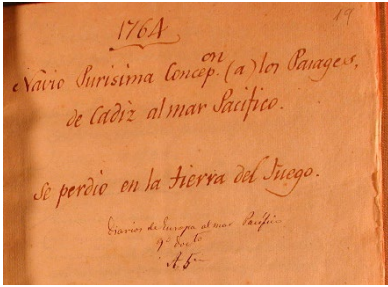 19
1764
Navio Purisima Concepon. (a) los Parages,
de Cadiz al mar Pacifico.
se perdio en la tierra del Fuego.
Diarios de Europa al mar Pacifico